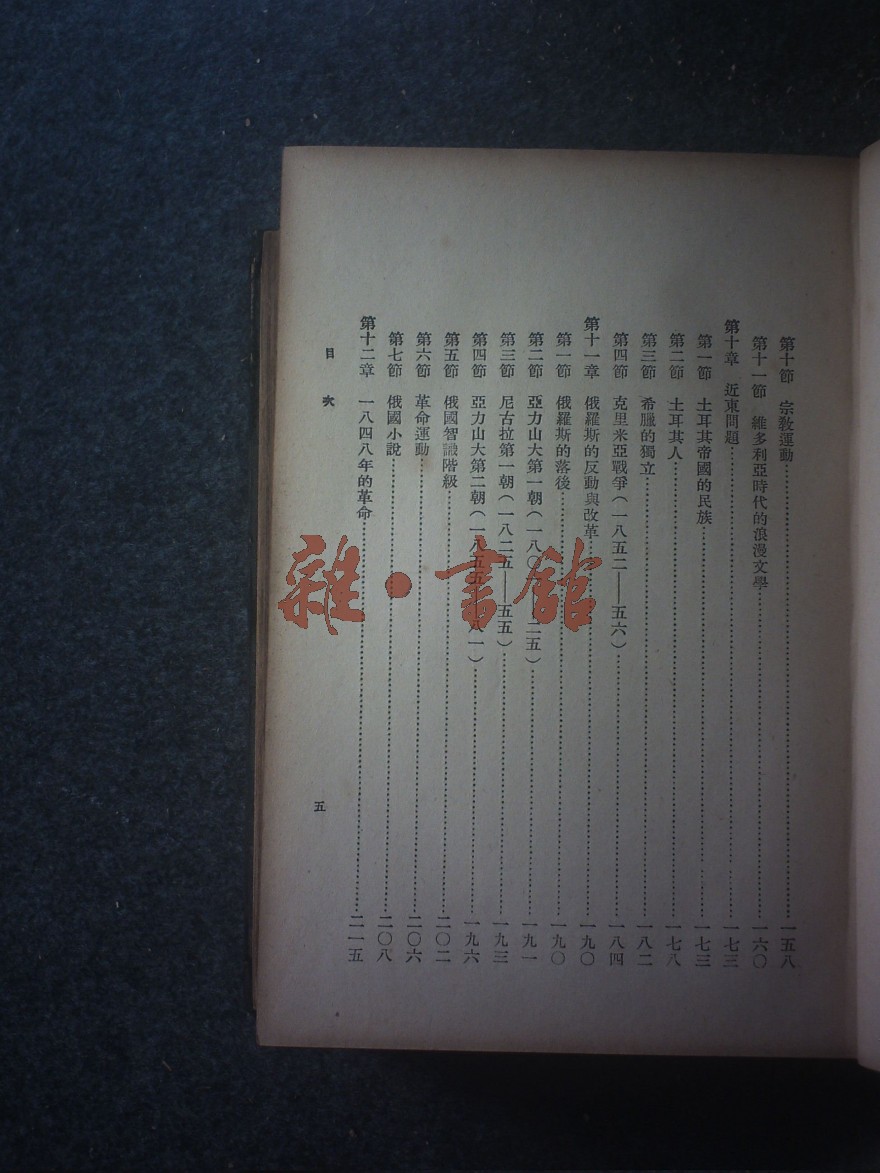 第十節 宗教運動……一五八
第十一節 維多利亞時代的浪漫文學……一六〇
第十章 近東問題……一七三
第一節 土耳其帝國的民族……一七三
第二節 土耳其人……一七八
第三節 希臘的獨立……一八二
第四節 克里米亞戰爭(一八五二——五六)……一八四
第十一章 俄羅斯的反動與改革……一九〇
第一節 俄羅斯的落後……一九〇
第二節 亞力山大第一朝(一八〇一——二五)……一九一
第三節 尼古拉第一朝(一八二五——五五)……一九三
第四節 亞力山大第二朝(一八五五——八一)……一九六
第五節 俄國智識階級……二〇二
第六節 革命運動……二〇六
第七節 俄國小說……二〇八
第十二章 一八四八年的革命……二一五
目次
五
雜·書館